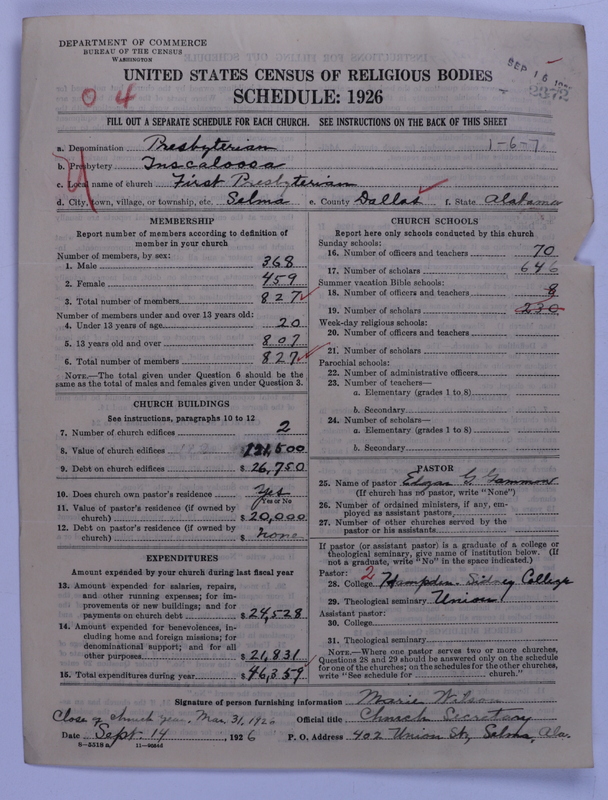 DEPARTMENT OF COMMERCE
BUREAU OF THE CENSUS
WASHINGTON
SEP 16
2372
UNITED STATES CENSUS OF RELIGIOUS BODIES
SCHEDULE: 1926
0 4
FILL OUT A SEPARATE SCHEDULE FOR EACH CHURCH. SEE INSTRUCTIONS ON THE BACK OF THIS SHEET
a. Denomination Presbyterian 1-6-7
b. Presbytery Tuscaloosa
c. Local name of church First Presbyterian
d. City, town, village, or township, etc. Selma e. County Dallas f. State Alabama
MEMBERSHIP
Report number of members according to definition of
member in your church
Number of members, by sex:
1. Male 368
2. Female 459
3. Total number of members 827
Number of members under and over 13 years old:
4. Under 13 years of age 20
5. 13 years old and over 807
6. Total number of members 827
NOTE.—The total given under Question 6 should be
same as the total of males and females given under Question 3.
CHURCH BUILDINGS
See instructions, paragraphs 10 to 12
7. Number of church edifices 2
8. Value of church edifices 121,500
9. Debt on church edifices $ 26,750
10. Does church own pastor's residence Yes
Yes or No
11. Value of pastor's residence (if owned by
church) $ 20,000
12. Debt on pastor's residence (if owned by
church) $ None
EXPENDITURES
Amount expended by your church during last fiscal year
13. Amount expended for salaries, repairs,
and other running expenses; for im-
provements or new buildings; and for
payments on church debt $ 24,528
14. Amount expended for benevolences, in-
cluding home and foreign missions; for
denominational support; and for all
other purposes $ 21,831
15. Total expenditures during year $ 46,359
CHURCH SCHOOLS
Report here only schools conducted by this church
Sunday schools:
16. Number of officers and teachers 70
17. Number of scholars 646
Summer vacation Bible schools:
18. Number of officers and teachers 8
19. Number of scholars 230
Week-day religious schools:
20. Number of officers and teachers
21. Number of scholars
Parochial schools:
22. Number of administrative officers
23. Number of teachers—
a. Elementary (grades 1 to 8)
b. Secondary
24. Number of scholars—
a. Elementary (grades 1 to 8)
b. Secondary
PASTOR
25. Name of pastor Edgar G. Gammon
(If church has no pastor, write "None")
26. Number of ordained ministers, if any, em-
ployed as assistant pastors
27. Number of other churches served by the
pastor or his assistants
If pastor (or assistant pastor) is a graduate of a college or
theological seminary, give name of institution below. (If
not a graduate, write "No" in the space indicated.)
Pastor: 2
28. College Hampden-Sidney College
29. Theological seminary Union
Assistant pastor:
30. College
31. Theological seminary
NOTE.—Where one pastor serves two or more churches,
Questions 28 and 29 should be answered only on the schedule
for one of the churches; on the schedules for the other churches,
write "See schedule for church."
Signature of person furnishing information Marie Wilson
Close of church year, Mar. 31, 1926 Official title Church Secretary
Date Sept-14, 1926 P. O. Address 402 Union St, Selma, Ala.
8-5318 a